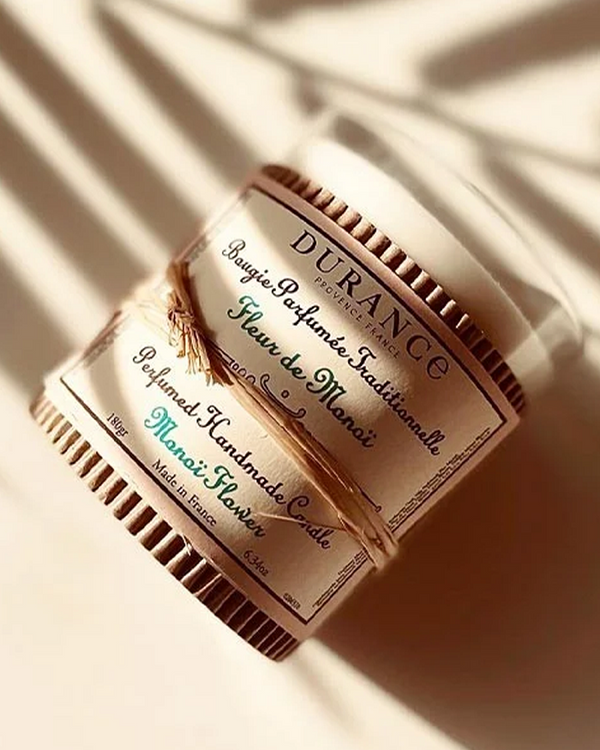 DURANCE
PROVENCE FRANCE
Baugie Parfumée Traditionnelle
Fleur de Monoï
Perfumed Handmade Candle
Monoï Flower
180gr
Made in France
6.34oz